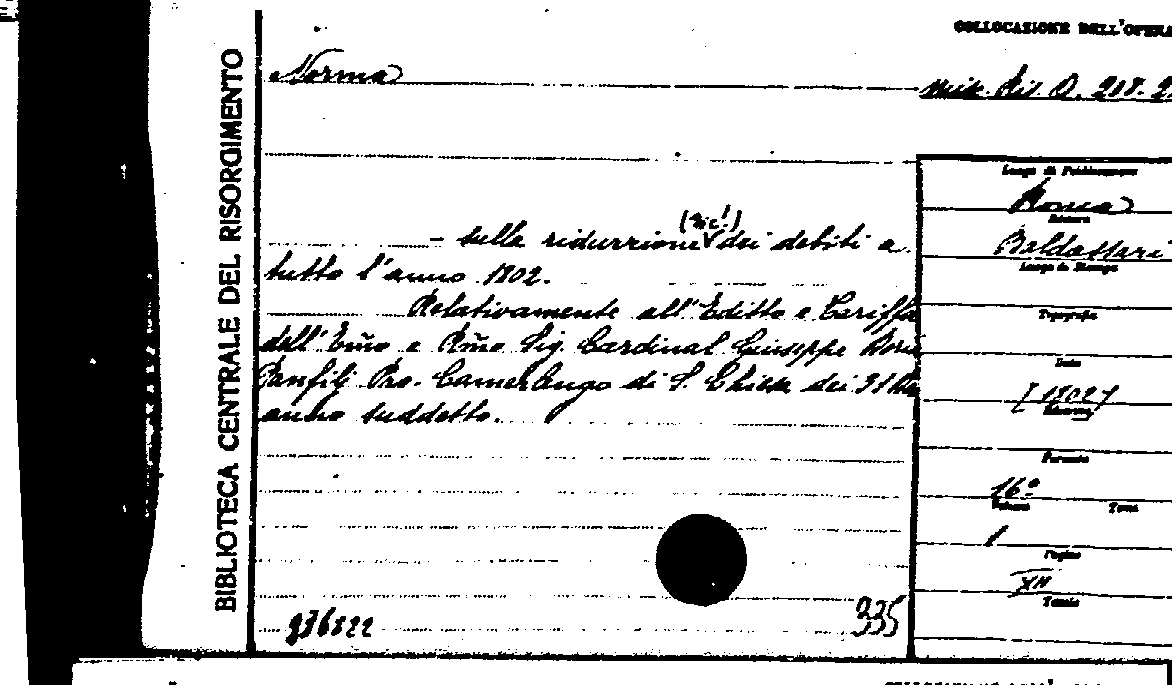 COLLOCAZIONE DELL'OPERA
Norma
Misc. Ris. O. 208.
BIBLIOTECA CENTRALE DEL RISORGIMENTO
Luogo di Pubblicazione
Roma
Editore
(sic!)
- sulla ridurzione dei debiti a
Baldassari
Luogo di Stampa
tutto l'anno 1802.
Relativamente all'Editto e Tariffa
Tipografia
dell'Emo e Rmo Sig. Cardinal Giuseppe Doria
Data
Panfilj Pro-Camerlengo di S. Chiesa dei 31
[1802]
anno suddetto.
Formato
16º
Volumi
Tomi
1
Pagine
XII
Tavole
936822
335